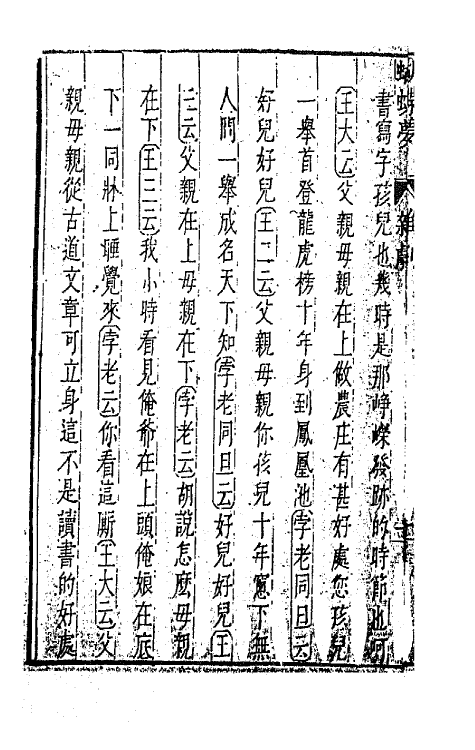 蝴蝶夢 雜劇
書寫字孩兒也幾時是那崢嶸發跡的時節也呵
王大云父親母親在上做農庄有甚好處您孩兒
一舉首登龍虎榜十年身到鳳凰池孛老同旦云
好兒好兒王二云父親母親你孩兒十年窻下無
人問一舉成名天下知孛老同旦云好兒好兒王
三云父親在上母親在下孛老云胡說怎麽母親
在下王三云我小時看見俺爺在上頭俺娘在底
下一同牀上睡覺來孛老云你看這厮王大云父
親母親從古道文章可立身這不是讀書的好處